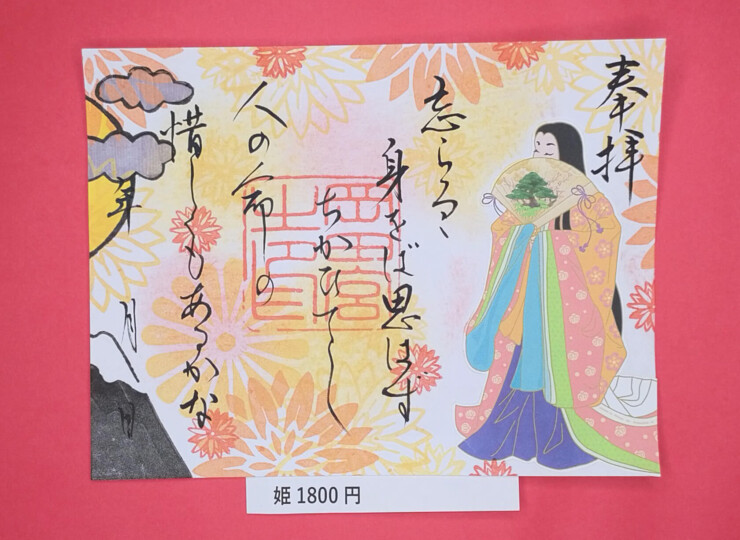 奉拝
忘らるゝ
身をば思はず
ちかひてし
人の命の
惜しくもあるかな
年 月 日
姫1800円